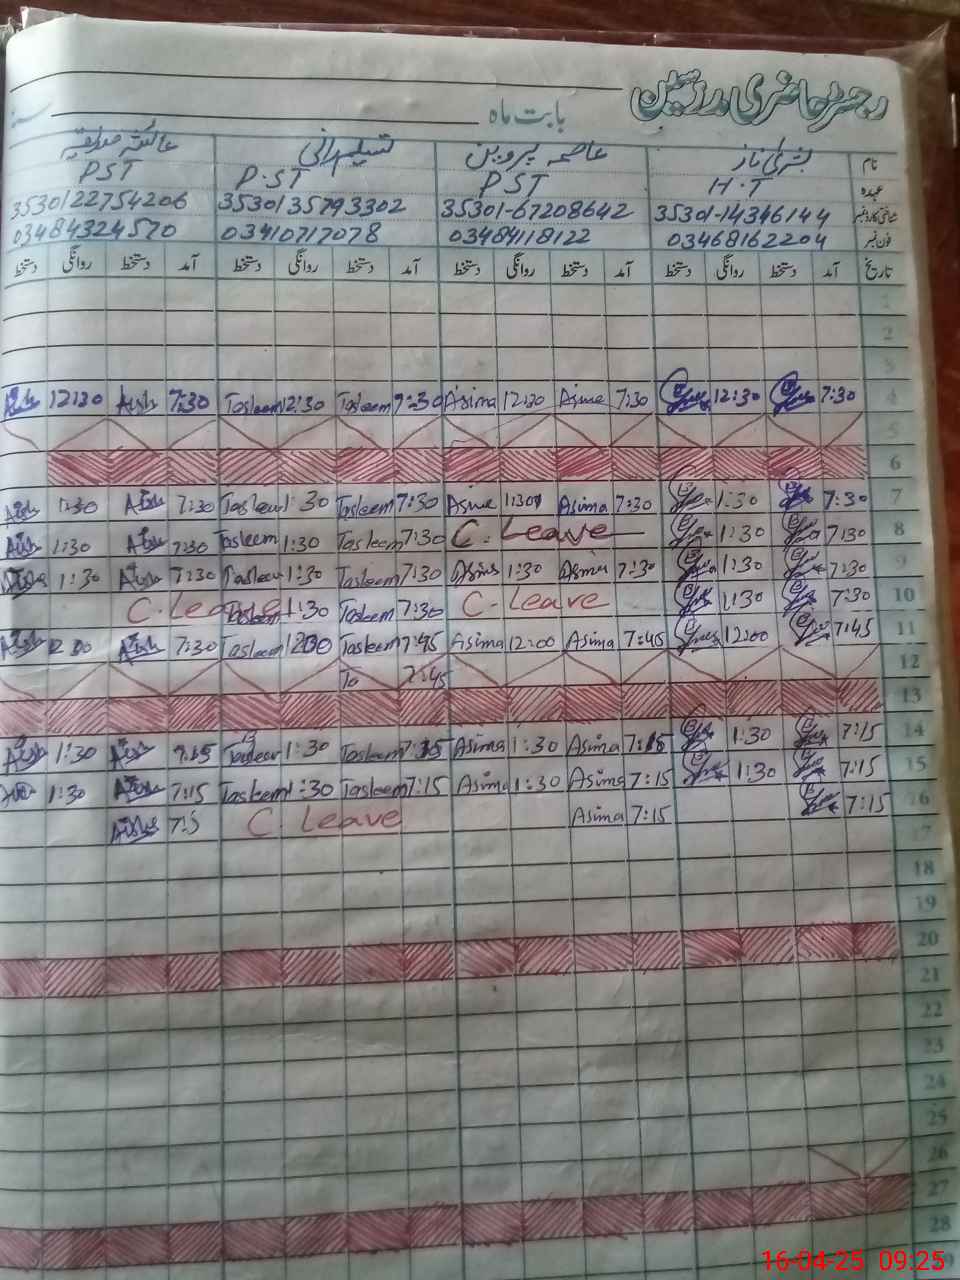 رجسٹر حاضری مدرسین
بابت ماہ
نام بشریٰ ناز عاصمہ پروین تسلیم رانی عائشہ صدیقہ
عہدہ H.T PST P.ST PST
شناختی کارڈ نمبر 35301-14346144 35301-67208642 3530135793302 3530122754206
فون نمبر 03468162204 03484118122 03410717078 03484324570
تاریخ آمد دستخط روانگی دستخط آمد دستخط روانگی دستخط آمد دستخط روانگی دستخط آمد دستخط روانگی دستخط
1
2
3
4 7:30 12:30 7:30 Asima 12:30 Asima 7:30 Tasleem 12:30 Tasleem 7:30 Aish 12:30 Aish
5
6
7 7:30 1:30 7:30 Asima 1:30 Asima 7:30 Tasleem 1:30 Tasleem 7:30 Aish 1:30 Aish
8 7:30 1:30 C. Leave 7:30 Tasleem 1:30 Tasleem 7:30 Aish 1:30 Aish
9 7:30 1:30 7:30 Asima 1:30 Asima 7:30 Tasleem 1:30 Tasleem 7:30 Aish 1:30 Aish
10 7:30 1:30 C. Leave 7:30 Tasleem 1:30 Tasleem C. Leave
11 7:45 12:00 7:45 Asima 12:00 Asima 7:45 Tasleem 12:00 Tasleem 7:30 Aish 12:00 Aish
12 7:45 To
13
14 7:15 1:30 7:15 Asima 1:30 Asima 7:15 Tasleem 1:30 Tasleem 7:15 Aish 1:30 Aish
15 7:15 1:30 7:15 Asima 1:30 Asima 7:15 Tasleem 1:30 Tasleem 7:15 Aish 1:30
16 7:15 7:15 Asima C. Leave 7:5 Aish
17
18
19
20
21
22
23
24
25
26
27
28
29
16-04-25 09:25